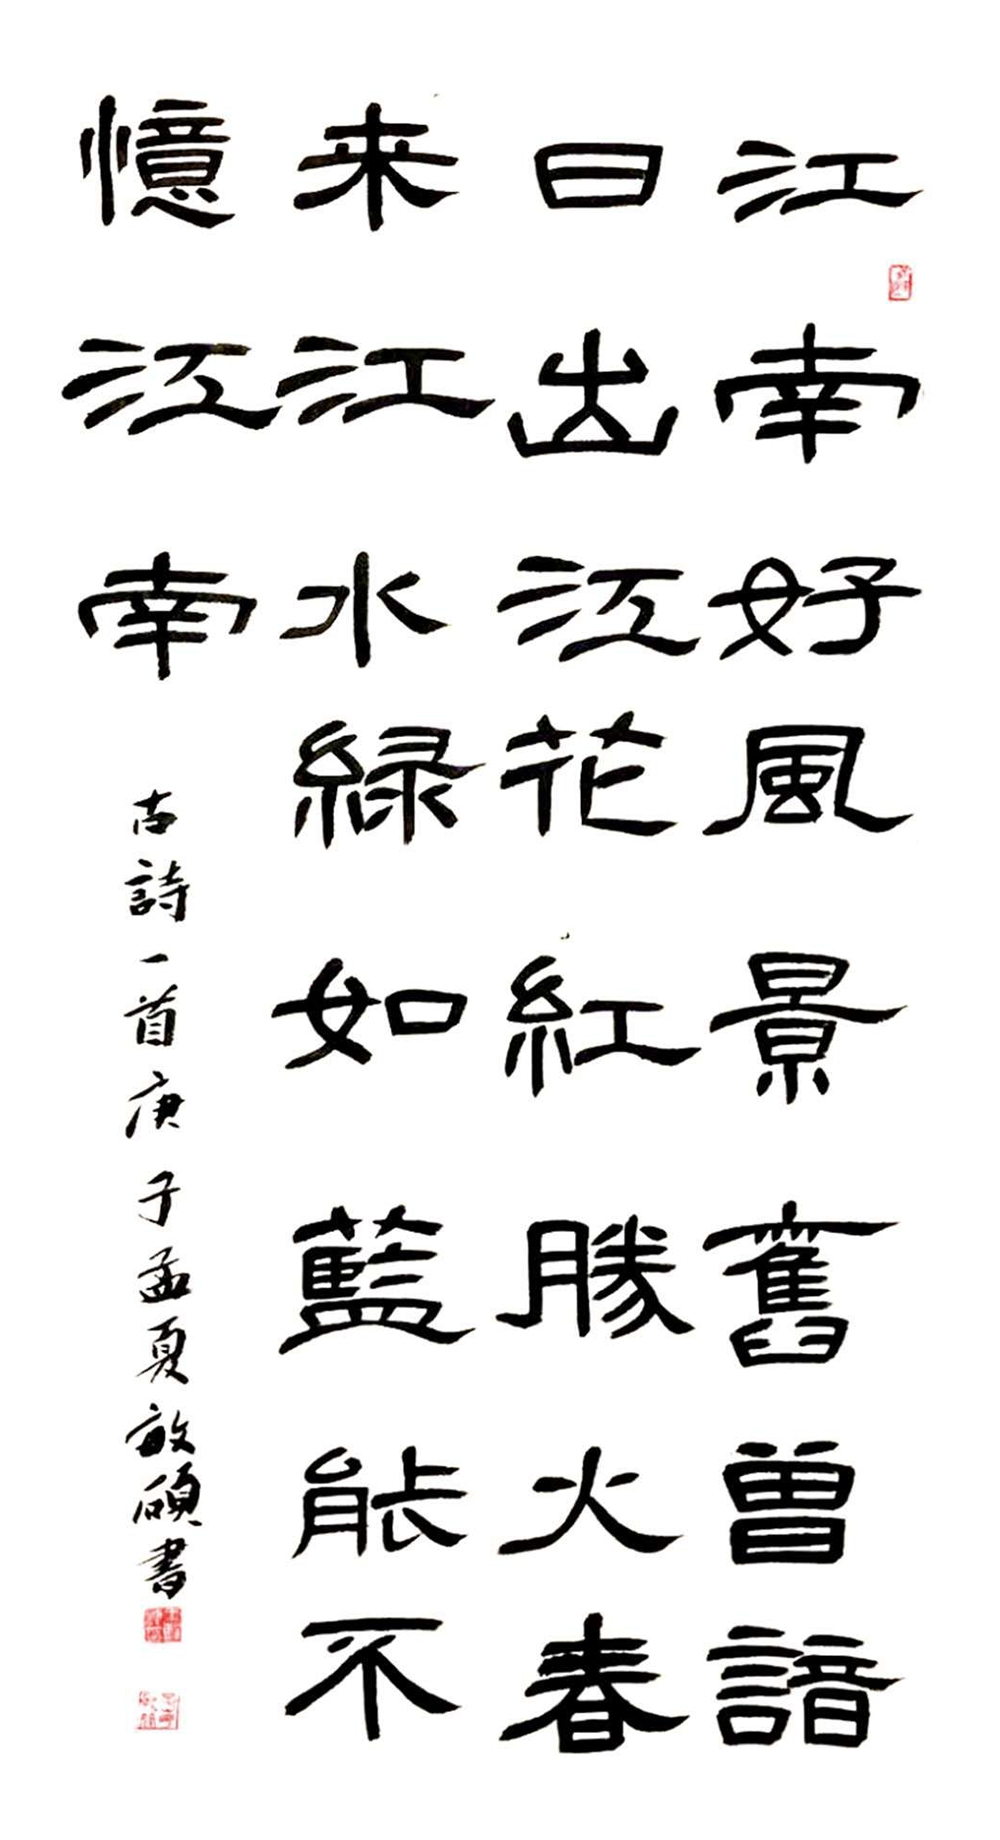 江南好風景舊曾諳
日出江花紅勝火春
来江水緑如藍能不
憶江南
古詩一首庚子孟夏敏碩書